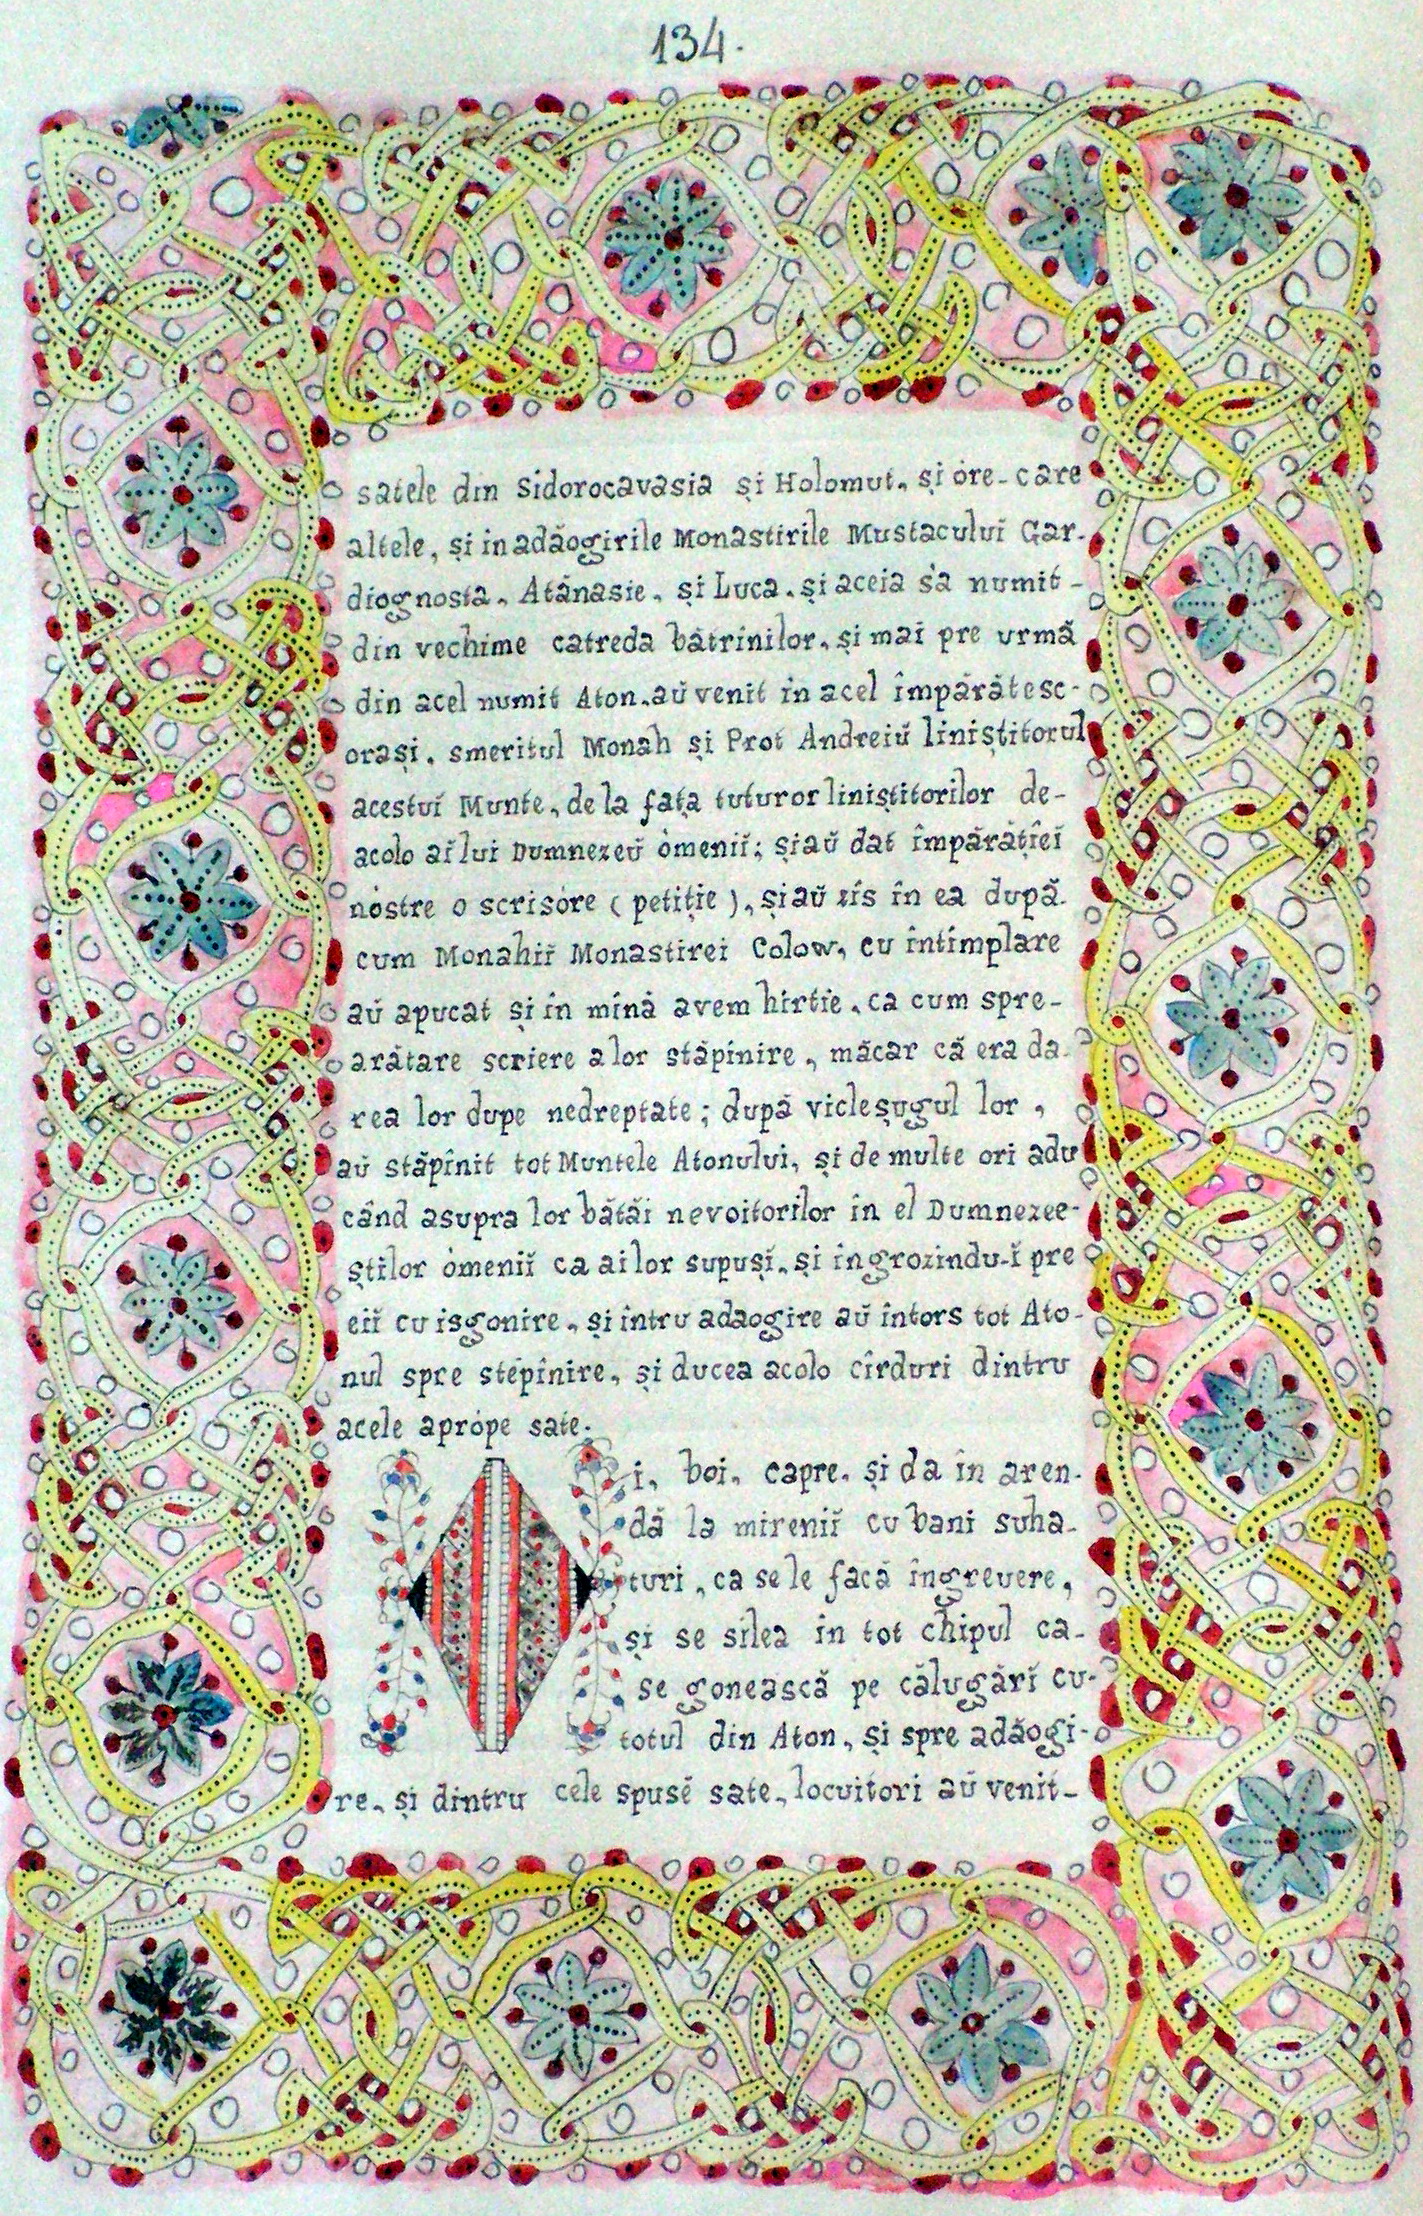 134.
satele din Sidorocavasia și Holomut, și óre-care
altele, și în adăogirile Monastirile Mustaculuĭ Gar-
diognosta, Atănasie, și Luca, și aceia s'a numit-
din vechime catreda bătrînilor, și maĭ pre urmă
din acel numit Aton, aŭ venit în acel împărătesc-
orași, smeritul Monah și Prot Andreiŭ liniștitorul
acestuĭ Munte, de la fața tuturor liniștitorilor de-
acolo aĭ lui Dumnezeŭ ómeniĭ; și aŭ dat împărățieĭ
nóstre o scrisóre (petiție), și aŭ zis în ea după-
cum Monahiĭ Monastirei Colow, cu întîmplare
aŭ apucat și în mînă avem hîrtie, ca cum spre-
arătare scriere a lor stăpînire, măcar că era da-
rea lor dupe nedreptate; după vicleșugul lor,
aŭ stăpînit tot Muntele Atonului, și de multe ori adu
când asupra lor bătăi nevoitorilor în el Dumnezee-
știlor ómeniĭ ca ai lor supuși, și îngrozindu-ĭ pre
eiĭ cu isgonire, și întru adaogire aŭ întors tot Ato-
nul spre stepînire, și ducea acolo cîrduri dintru
acele aprópe sate.
Oi, boi, capre, și da în aren-
dă la mireniĭ cu bani suha-
turi, ca se le facă îngreuere,
și se silea în tot chipul ca-
se gonească pe călugări cu-
totul din Aton, și spre adăogi-
re, și dintru cele spusĕ sate, locuitori aŭ venit-